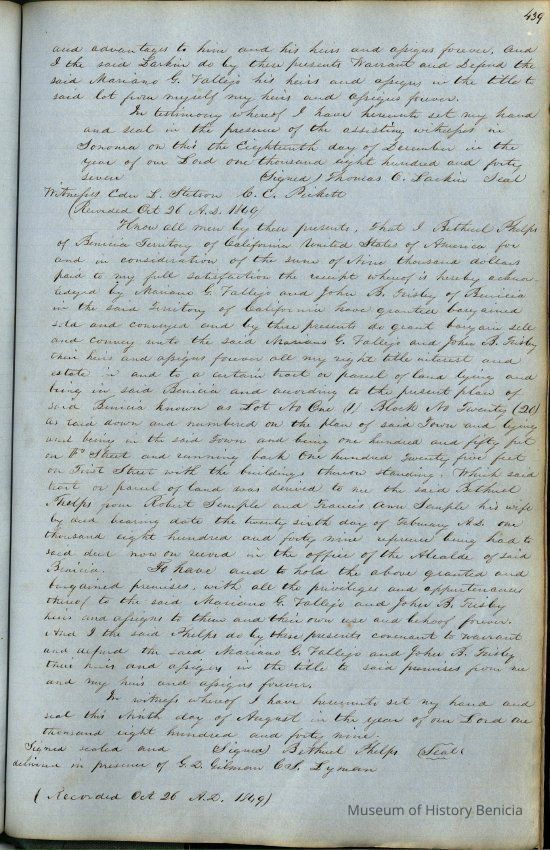 439
and advantages to him and his heirs and assigns forever, And
I the said Larkin do by these presents Warrant and Defend the
said Mariano G. Vallejo his heirs and assigns, in the title to
said lot from myself my heirs and assigns forever.
In testimony whereof I have hereunto set my hand
and seal in the presence of the assisting witnesses in
Sonoma on this the Eighteenth day of December in the
year of our Lord one thousand eight hundred and forty
seven (Signed) Thomas O. Larkin Seal
Witnesses Edw L. Stetson C. C. Pickett
(Recorded Oct 26 A.D. 1849
Know all men by these presents, that I Bethuel Phelps
of Benicia Territory of California United States of America for
and in consideration of the sum of Nine thousand dollars
paid to my full satisfaction the receipt whereof is hereby acknow-
ledged by Mariano G. Vallejo and John B. Frisby of Benicia
in the said Territory of California have granted bargained
sold and conveyed and by these presents do grant bargain sell
and convey unto the said Mariano G. Vallejo and John B. Frisby
their heirs and assigns forever all my right title interest and
estate in and to a certain tract or parcel of land lying and
being in said Benicia and according to the present plan of
said Benicia known as Lot No One (1) Block No Twenty (20)
as laid down and numbered on the plan of said Town and lying
and being in the said Town and being one hundred and fifty feet
on Street and running back One hundred Twenty five feet
on First Street with the buildings thereon standing. Which said
tract or parcel of land was derived to me the said Bethuel
Phelps from Robert Semple and Francis Ann Semple his wife
by deed bearing date the twenty sixth day of February A.D. one
thousand eight hundred and forty nine reference being had to
said deed now on record in the office of the Alcalde of said
Benicia. To have and to hold the above granted and
bargained premises, with all the priviliges and appurtenances
thereof to the said Mariano G. Vallejo and John B. Frisby
heirs and assigns to them and their own use and behoof forever.
And I the said Phelps do by these presents covenant to warrant
and defend the said Mariano G. Vallejo and John B. Frisby
their heirs and assigns in the title to said premises from me
and my heirs and assigns forever.
In witness whereof I have hereunto set my hand and
seal this Ninth day of August in the year of our Lord one
thousand eight hundred and forty nine.
Signed sealed and (Signed) Bethuel Phelps (Seal)
delivered in presence of G. D. Gilman C. S. Lyman
(Recorded Oct 26 A.D. 1849)
Museum of History Benicia